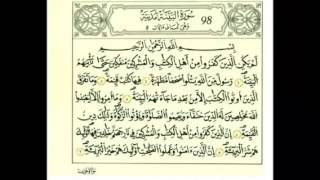 سُورَةُ الْبَيِّنَةِ مَدَنِيَّة 98
بِسْمِ اللَّهِ الرَّحْمَٰنِ الرَّحِيمِ
لَمْ يَكُنِ الَّذِينَ كَفَرُوا مِنْ أَهْلِ الْكِتَٰبِ وَالْمُشْرِكِينَ مُنفَكِّينَ حَتَّىٰ تَأْتِيَهُمُ
الْبَيِّنَةُ ۝ رَسُولٌ مِّنَ اللَّهِ يَتْلُوا صُحُفًا مُّطَهَّرَةً ۝ فِيهَا كُتُبٌ قَيِّمَةٌ ۝ وَمَا تَفَرَّقَ
الَّذِينَ أُوتُوا الْكِتَٰبَ إِلَّا مِن بَعْدِ مَا جَاءَتْهُمُ الْبَيِّنَةُ ۝ وَمَا أُمِرُوا إِلَّا لِيَعْبُدُوا
اللَّهَ مُخْلِصِينَ لَهُ الدِّينَ حُنَفَاءَ وَيُقِيمُوا الصَّلَوٰةَ وَيُؤْتُوا الزَّكَوٰةَ وَذَٰلِكَ دِينُ
الْقَيِّمَةِ ۝ إِنَّ الَّذِينَ كَفَرُوا مِنْ أَهْلِ الْكِتَٰبِ وَالْمُشْرِكِينَ فِي نَارِ جَهَنَّمَ خَٰلِدِينَ فِيهَا أُولَٰئِكَ
هُمْ شَرُّ الْبَرِيَّةِ ۝ إِنَّ الَّذِينَ ءَامَنُوا وَعَمِلُوا الصَّٰلِحَٰتِ أُولَٰئِكَ هُمْ خَيْرُ الْبَرِيَّةِ ۝